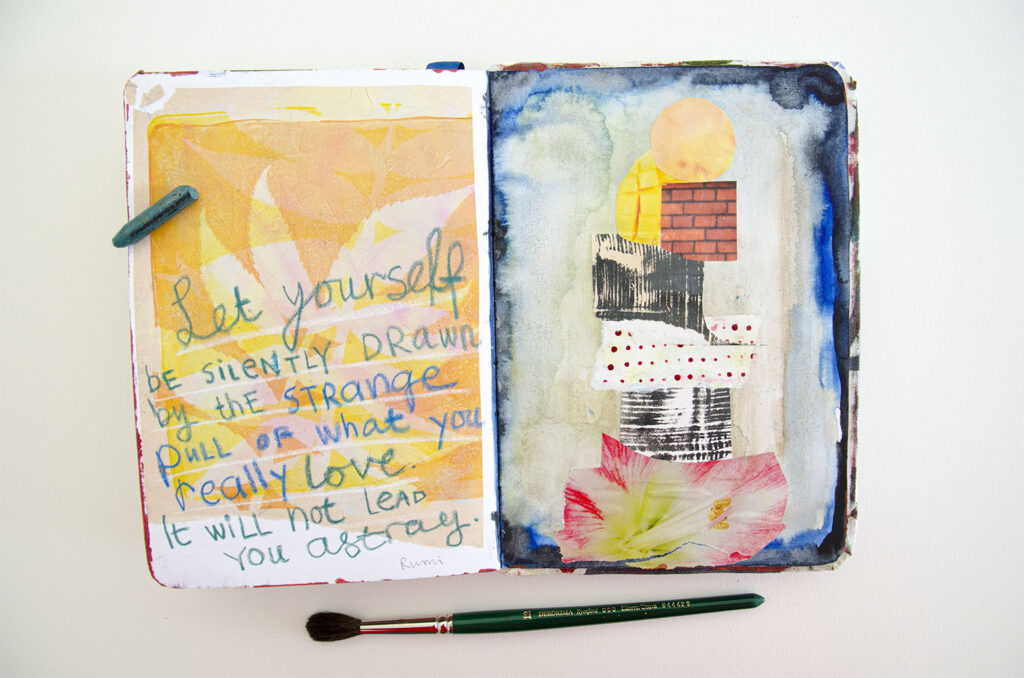 Let yourself
BE SiLENTLY DRAWN
by thE STRange
PULL OF what you
really love.
It WiLL not LEAD
YOU astray.
Rumi